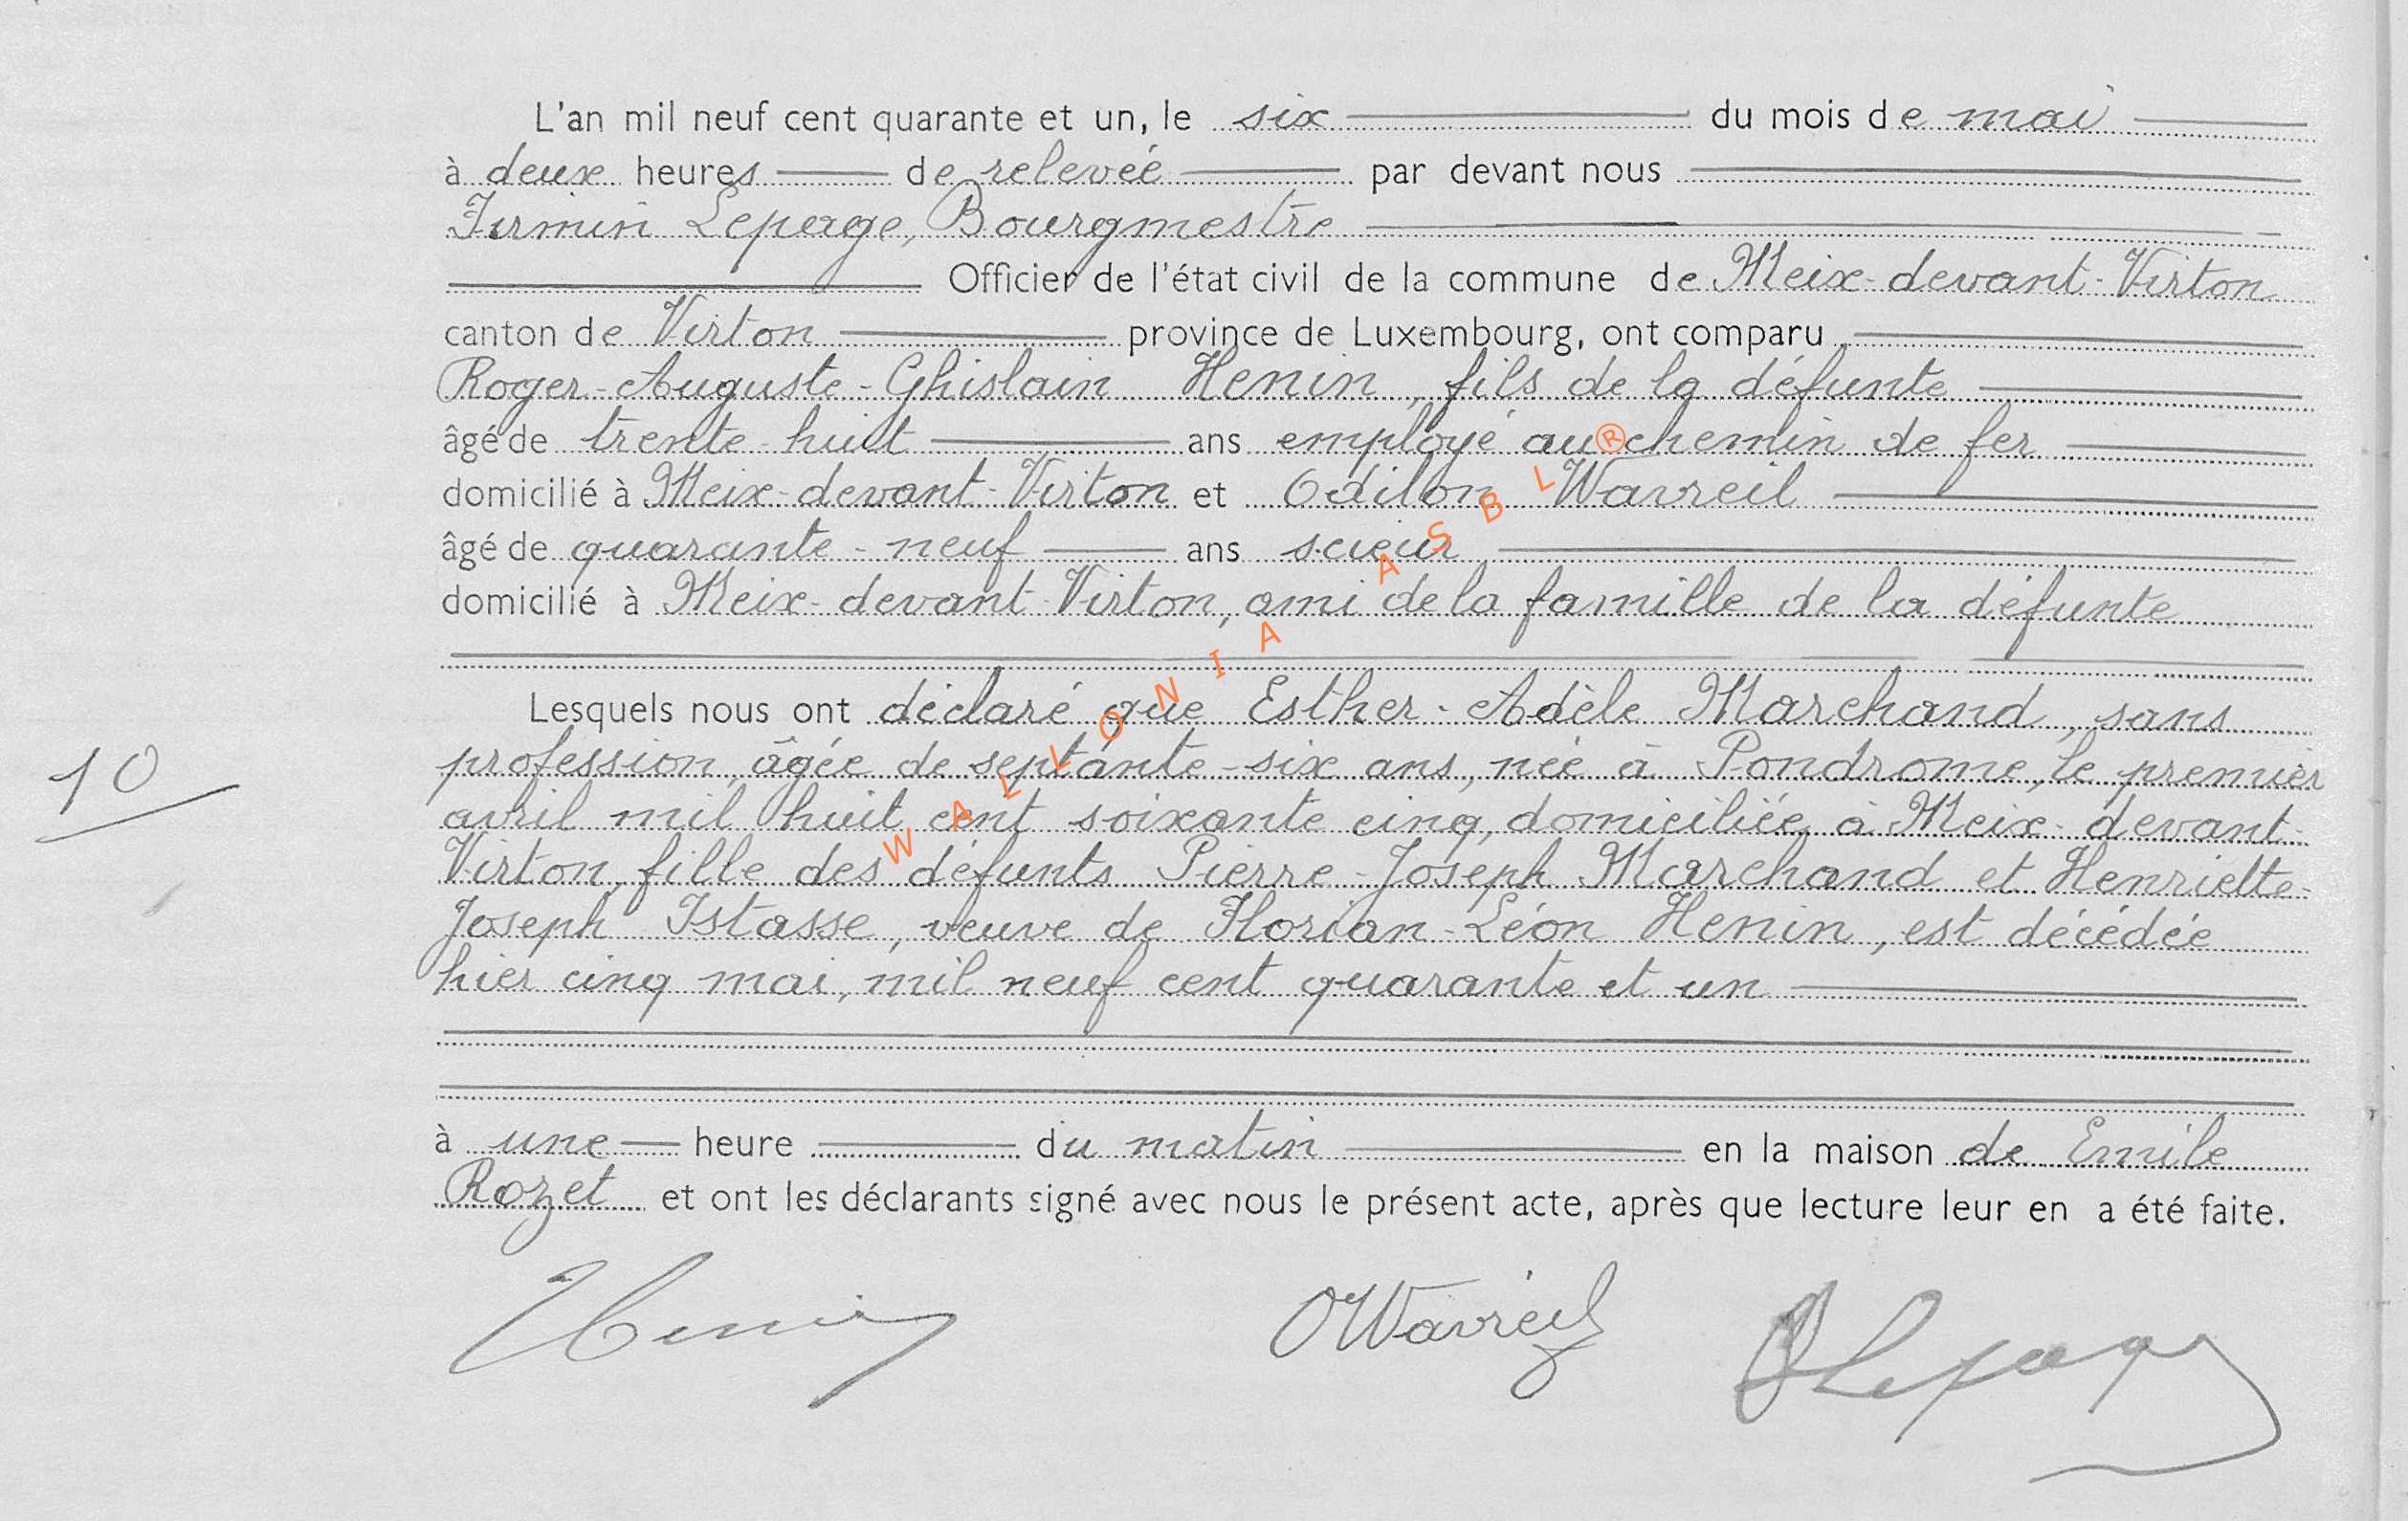 L'an mil neuf cent quarante et un, le six du mois de mai
à deux heures de relevée par devant nous
Firmin Lepage, Bourgmestre
Officier de l'état civil de la commune de Meix-devant-Virton
canton de Virton province de Luxembourg, ont comparu
Roger-Auguste-Ghislain Henin, fils de la défunte
âgé de trente-huit ans employé au chemin de fer
domicilié à Meix-devant-Virton et Odilon Wavreil
âgé de quarante-neuf ans scieur
domicilié à Meix-devant-Virton, ami de la famille de la défunte
Lesquels nous ont déclaré que Esther-Adèle Marchand, sans
profession, âgée de septante-six ans, née à Pondrome, le premier
10
avril mil huit cent soixante cinq, domiciliée à Meix-devant-
Virton, fille des défunts Pierre-Joseph Marchand et Henriette-
Joseph Istasse, veuve de Florian-Léon Henin, est décédée
hier cinq mai, mil neuf cent quarante et un
à une heure du matin en la maison de Emile
Rozet et ont les déclarants signé avec nous le présent acte, après que lecture leur en a été faite.
Henin OWavreil FLepage
WALLONIA ASBL ®